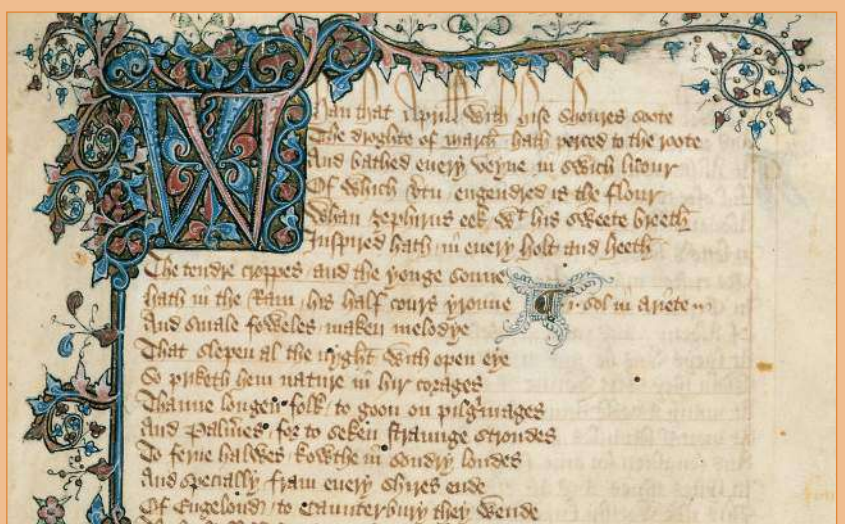 Whan that Aprill with his shoures soote
The droghte of march hath perced to the roote
And bathed euery veyne in swich licour
Of which vtu engendred is the flour
Whan zephirus eek wt his sweete breeth
Inspired hath in euery holt and heeth
The tendre croppes and the yonge sonne
hath in the Ram his half cours yronne
i sol in ariete
And smale foweles maken melodye
That slepen al the nyght with open eye
So priketh hem nature in hir corages
Thanne longen folk to goon on pilgrimages
And Palmeres for to seken straunge strondes
To ferne halwes kowthe in sondry londes
And specially fram euery shires ende
Of Engelond to Caunterbury they wende